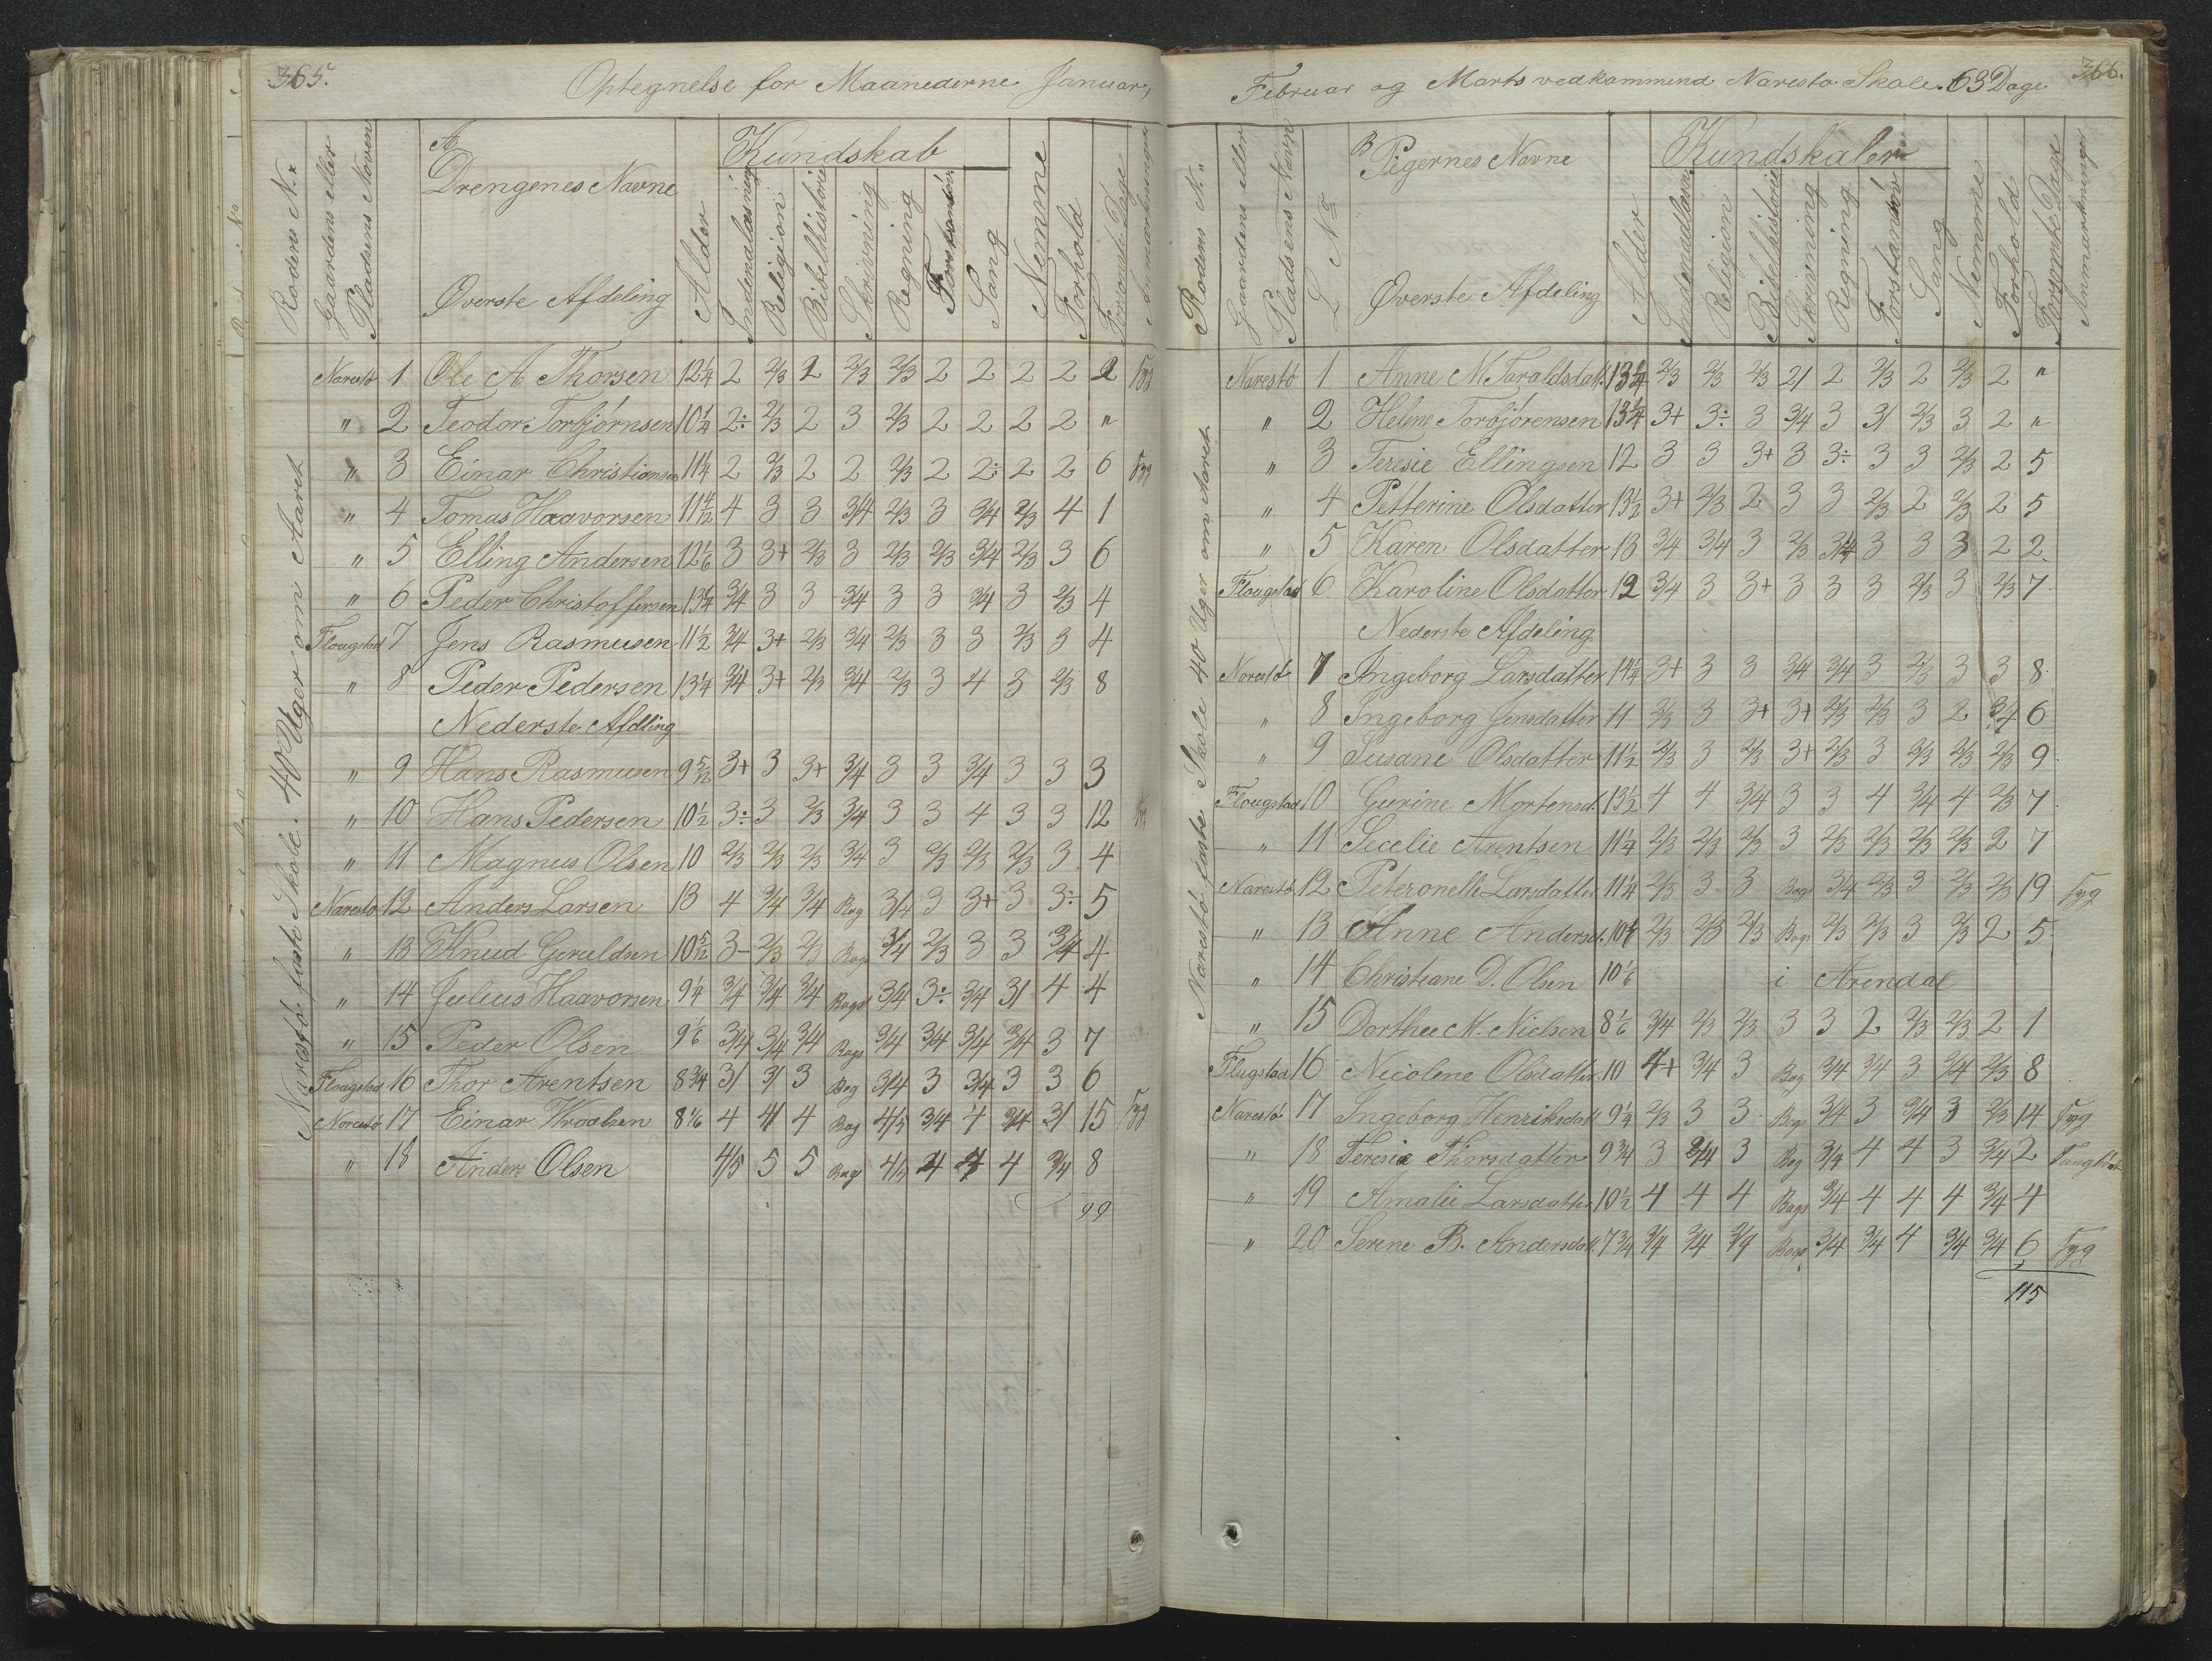 365.
Optegnelse for Maanederne Januar,
Rodens N.r
Gaardens eller Pladsens Naven
A
Drengenes Navne
Øverste Afdeling
Alder
Kundskab
Indenadlæsning
Religion
Bibelhistorie
Skrivning
Regning
Forstandsöv.
Sang
Nemme
Forhold
Forsömte Dage
Anmærkninger
Narestö faste Skole. 40 Uger om Aaret
Narestö 1 Ole A Thorsen 12 1/4 2 2/3 2 2/3 2/3 2 2 2 2 2 Syg
" 2 Teodor Torbjörnsen 10 1/4 2÷ 2/3 2 3 2/3 2 2 2 2 "
" 3 Einar Christiansen 11 1/4 2 2/3 2 2 2/3 2 2÷ 2 2 6 Syg
" 4 Tomas Haavorsen 11 4/12 4 3 3 3/4 2/3 3 3/4 2/3 4 1
" 5 Elling Andersen 12 1/6 3 3+ 2/3 3 2/3 2/3 3/4 2/3 3 6
" 6 Peder Christoffersen 13 1/4 3/4 3 3 3/4 3 3 3/4 3 2/3 4
Flougstad 7 Jens Rasmusen 11 1/2 3/4 3+ 2/3 3/4 2/3 3 3 2/3 3 4
" 8 Peder Pedersen 13 1/4 3/4 3+ 2/3 3/4 2/3 3 4 3 2/3 8
Nederste Afdling
" 9 Hans Rasmusen 9 5/12 3+ 3 3+ 3/4 3 3 3/4 3 3 3
" 10 Hans Pedersen 10 1/2 3÷ 3 2/3 3/4 3 3 4 3 3 12
" 11 Magnus Olsen 10 2/3 2/3 2/3 3/4 3 2/3 2/3 2/3 3 4
Narestö 12 Anders Larsen 13 4 3/4 3/4 Bog 3/4 3 3+ 3 3÷ 5
" 13 Knud Geruldsen 10 5/12 3- 2/3 2/3 Bogs 3/4 2/3 3 3 3/4 4
" 14 Julius Haavorsen 9 1/4 3/4 3/4 3/4 Bogs 3/4 3÷ 3/4 31 4 4
" 15 Peder Olsen 9 1/6 3/4 3/4 3/4 Bogs 3/4 3/4 3/4 3/4 3 7
Flougstad 16 Thor Arentsen 8 3/4 31 31 3 Bog 3/4 3 3/4 3 3 6
Narestö 17 Einar 8 1/6 4 41 4 Bog 4/5 3/4 4 3/4 31 15 Syg
" 18 Anders Olsen 4/5 5 5 Bog 4/5 4 4 4 3/4 8
99
Februar og Marts vedkommend Narestö Skole. 63 Dage
366.
Rodens N.r
Gaardens eller Pladsens Navn
L No
B
Pigernes Navne
Øverste Afdeling
Alder
Kundskaber
Indenadlæsn.
Religion
Bibelhistorie
Skrivning
Regning
Forstandöv
Sang
Nemme
Forhold
Forsömte Dage
Anmærkninger
Narestö faste Skole 40 Uger om Aaret
Narestö 1 Anne M Taraldsdatt. 13 1/4 2/3 2/3 2/3 21 2 2/3 2 2/3 2 "
" 2 Helene Torbjörensen 13 1/4 3+ 3÷ 3 3/4 3 31 2/3 3 2 "
" 3 Teresie Ellingsen 12 3 3 3+ 3 3÷ 3 3 2/3 2 5
" 4 Petterine Olsdatter 13 1/2 3+ 2/3 2 3 3 2/3 2 2/3 2 5
" 5 Karen Olsdatter 13 3/4 3/4 3 2/3 3/4 3 3 3 2 2
Flougstad 6 Karoline Olsdatter 12 3/4 3 3+ 3 3 3 2/3 3 2/3 7
Nederste Afdeling
Narestö 7 Ingeborg Larsdatter 14 1/4 3+ 3 3 3/4 3/4 3 2/3 3 3 8
" 8 Ingeborg Jensdatter 11 2/3 3 3+ 3+ 2/3 2/3 3 2 3/4 6
" 9 Susane Olsdatter 11 1/2 2/3 3 2/3 3+ 2/3 3 2/3 2/3 2/3 9
Flougstad 10 Gurine Mortensd. 13 1/2 4 4 3/4 3 3 4 3/4 4 2/3 7
" 11 Secelie Arentsen 11 1/4 2/3 2/3 2/3 3 2/3 2/3 2/3 2/3 2 7
Narestö 12 Peteronelle Larsdatter 11 1/4 2/3 3 3 Bogs 3/4 2/3 3 2/3 2/3 19 Syg
" 13 Anne Andersd. 10 1/4 2/3 2/3 2/3 Bogs 2/3 2/3 3 2/3 2 5
" 14 Christiane D. Olsen 10 1/6 i Arendal
" 15 Dorthee M. Nielsen 8 1/6 3/4 2/3 2/3 3 3 2 2/3 2/3 2 1
Flugstad 16 Nicoline Olsdatter 10 4+ 3/4 3 Bog 3/4 3/4 3 3/4 2/3 8
Narestö 17 Ingeborg Henriksdat 9 1/4 2/3 3 3 Bog 3/4 3 3/4 3 2/3 14 Syg
" 18 Teresie Thorsdatter 9 3/4 3 3/4 3 Bog 3/4 4 4 3 3/4 2
" 19 Amalie Larsdatter 10 1/2 4 4 4 Bogs 3/4 4 4 4 3/4 4
" 20 Serene B. Andersdatt. 7 3/4 3/4 3/4 3/4 Bogs 3/4 3/4 4 3/4 3/4 6 Syg
115